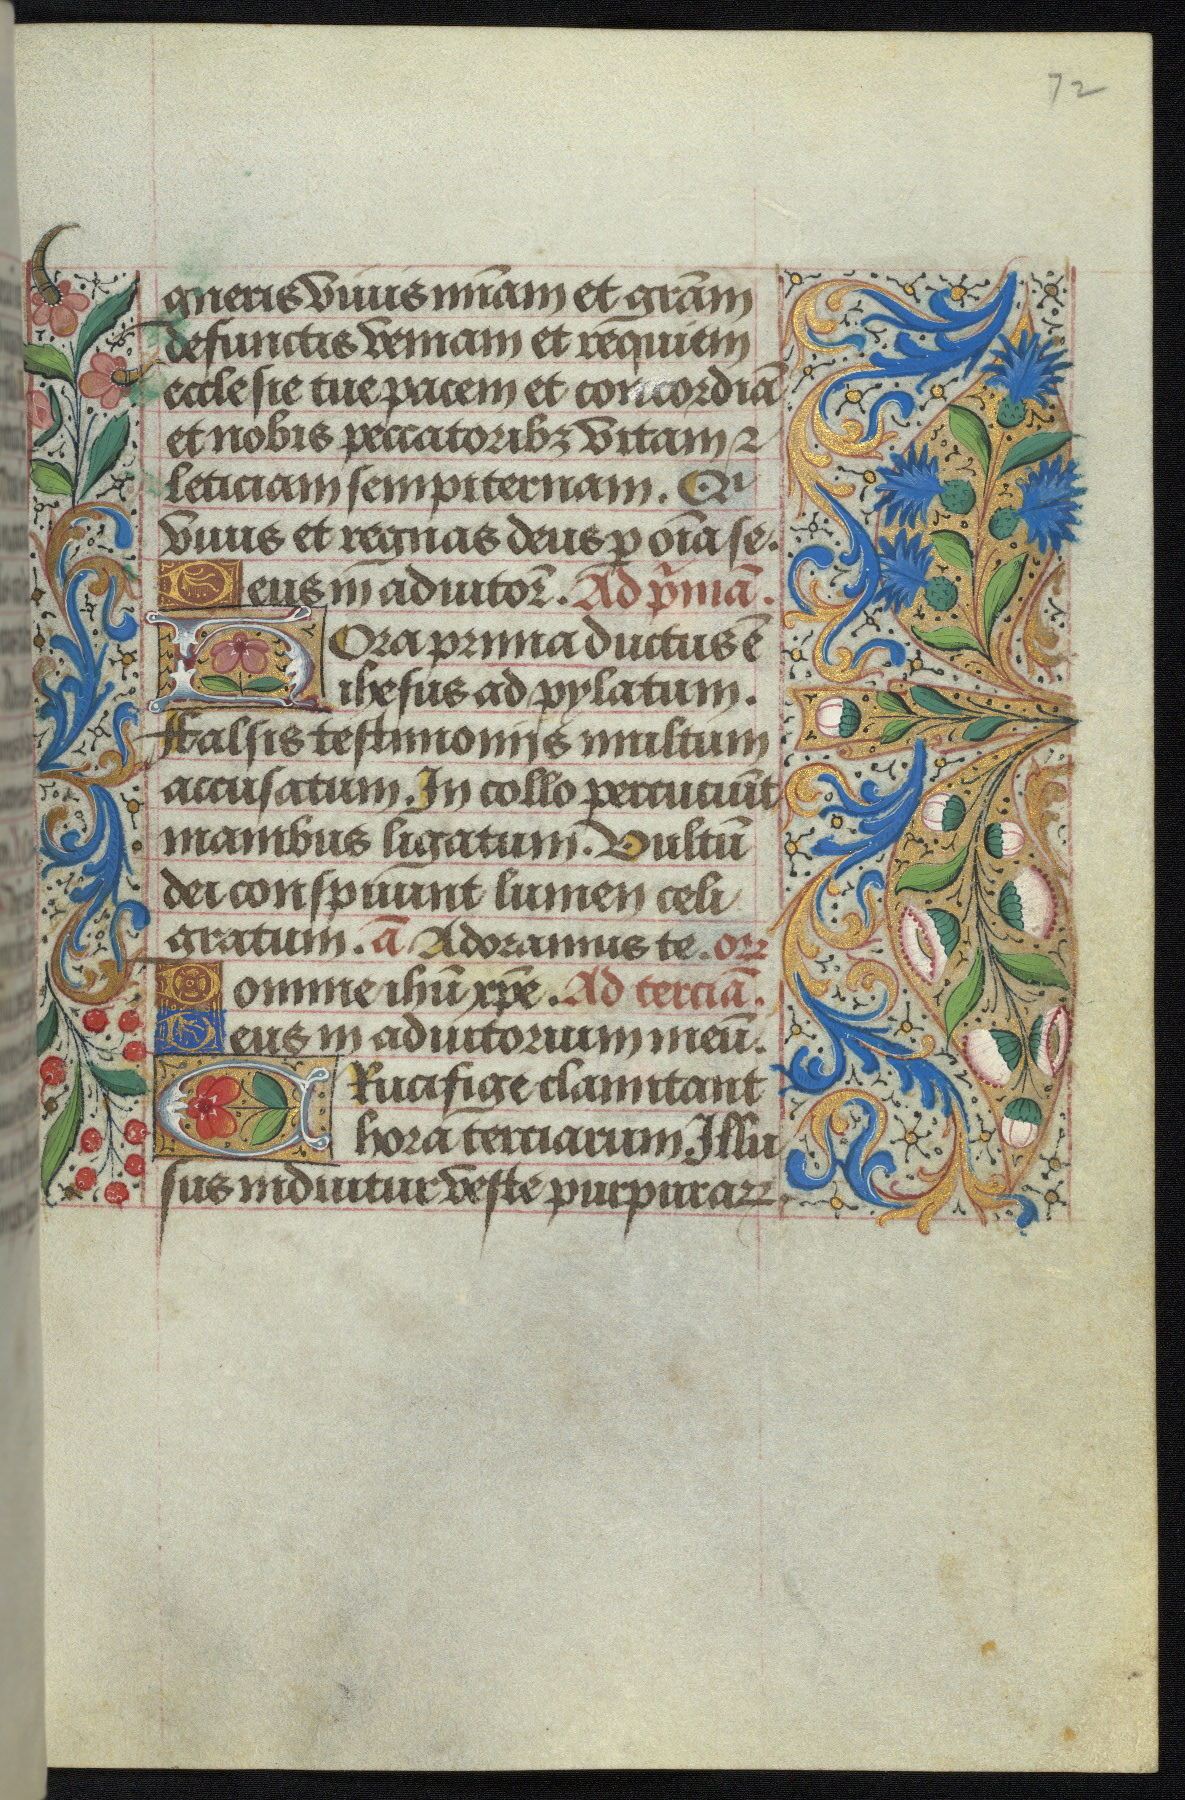 72
gneris viuis mīam et grām
defunctis veniam et requiem
ecclesie tue pacem et concordiā
et nobis peccatoribꝫ vitam ⁊
leticiam sempiternam. Qi
viuis et regnas deus ꝑ oīa se.
Deus in adiutor̄. Ad p̄mā.
Hora prima ductus ē
ihesus ad pylatum.
ffalsis testimonijs multum
accusatum. In collo percuciūt
manibus ligatum. Vultū
dei conspuūnt lumen celi
gratum. ā Adoramus te. or
Domine ihū xp̄e. Ad terciā.
Deus in adiutorium meū.
CRucifige clamitant
hora terciarum. Illu
sus induitur veste purpurar